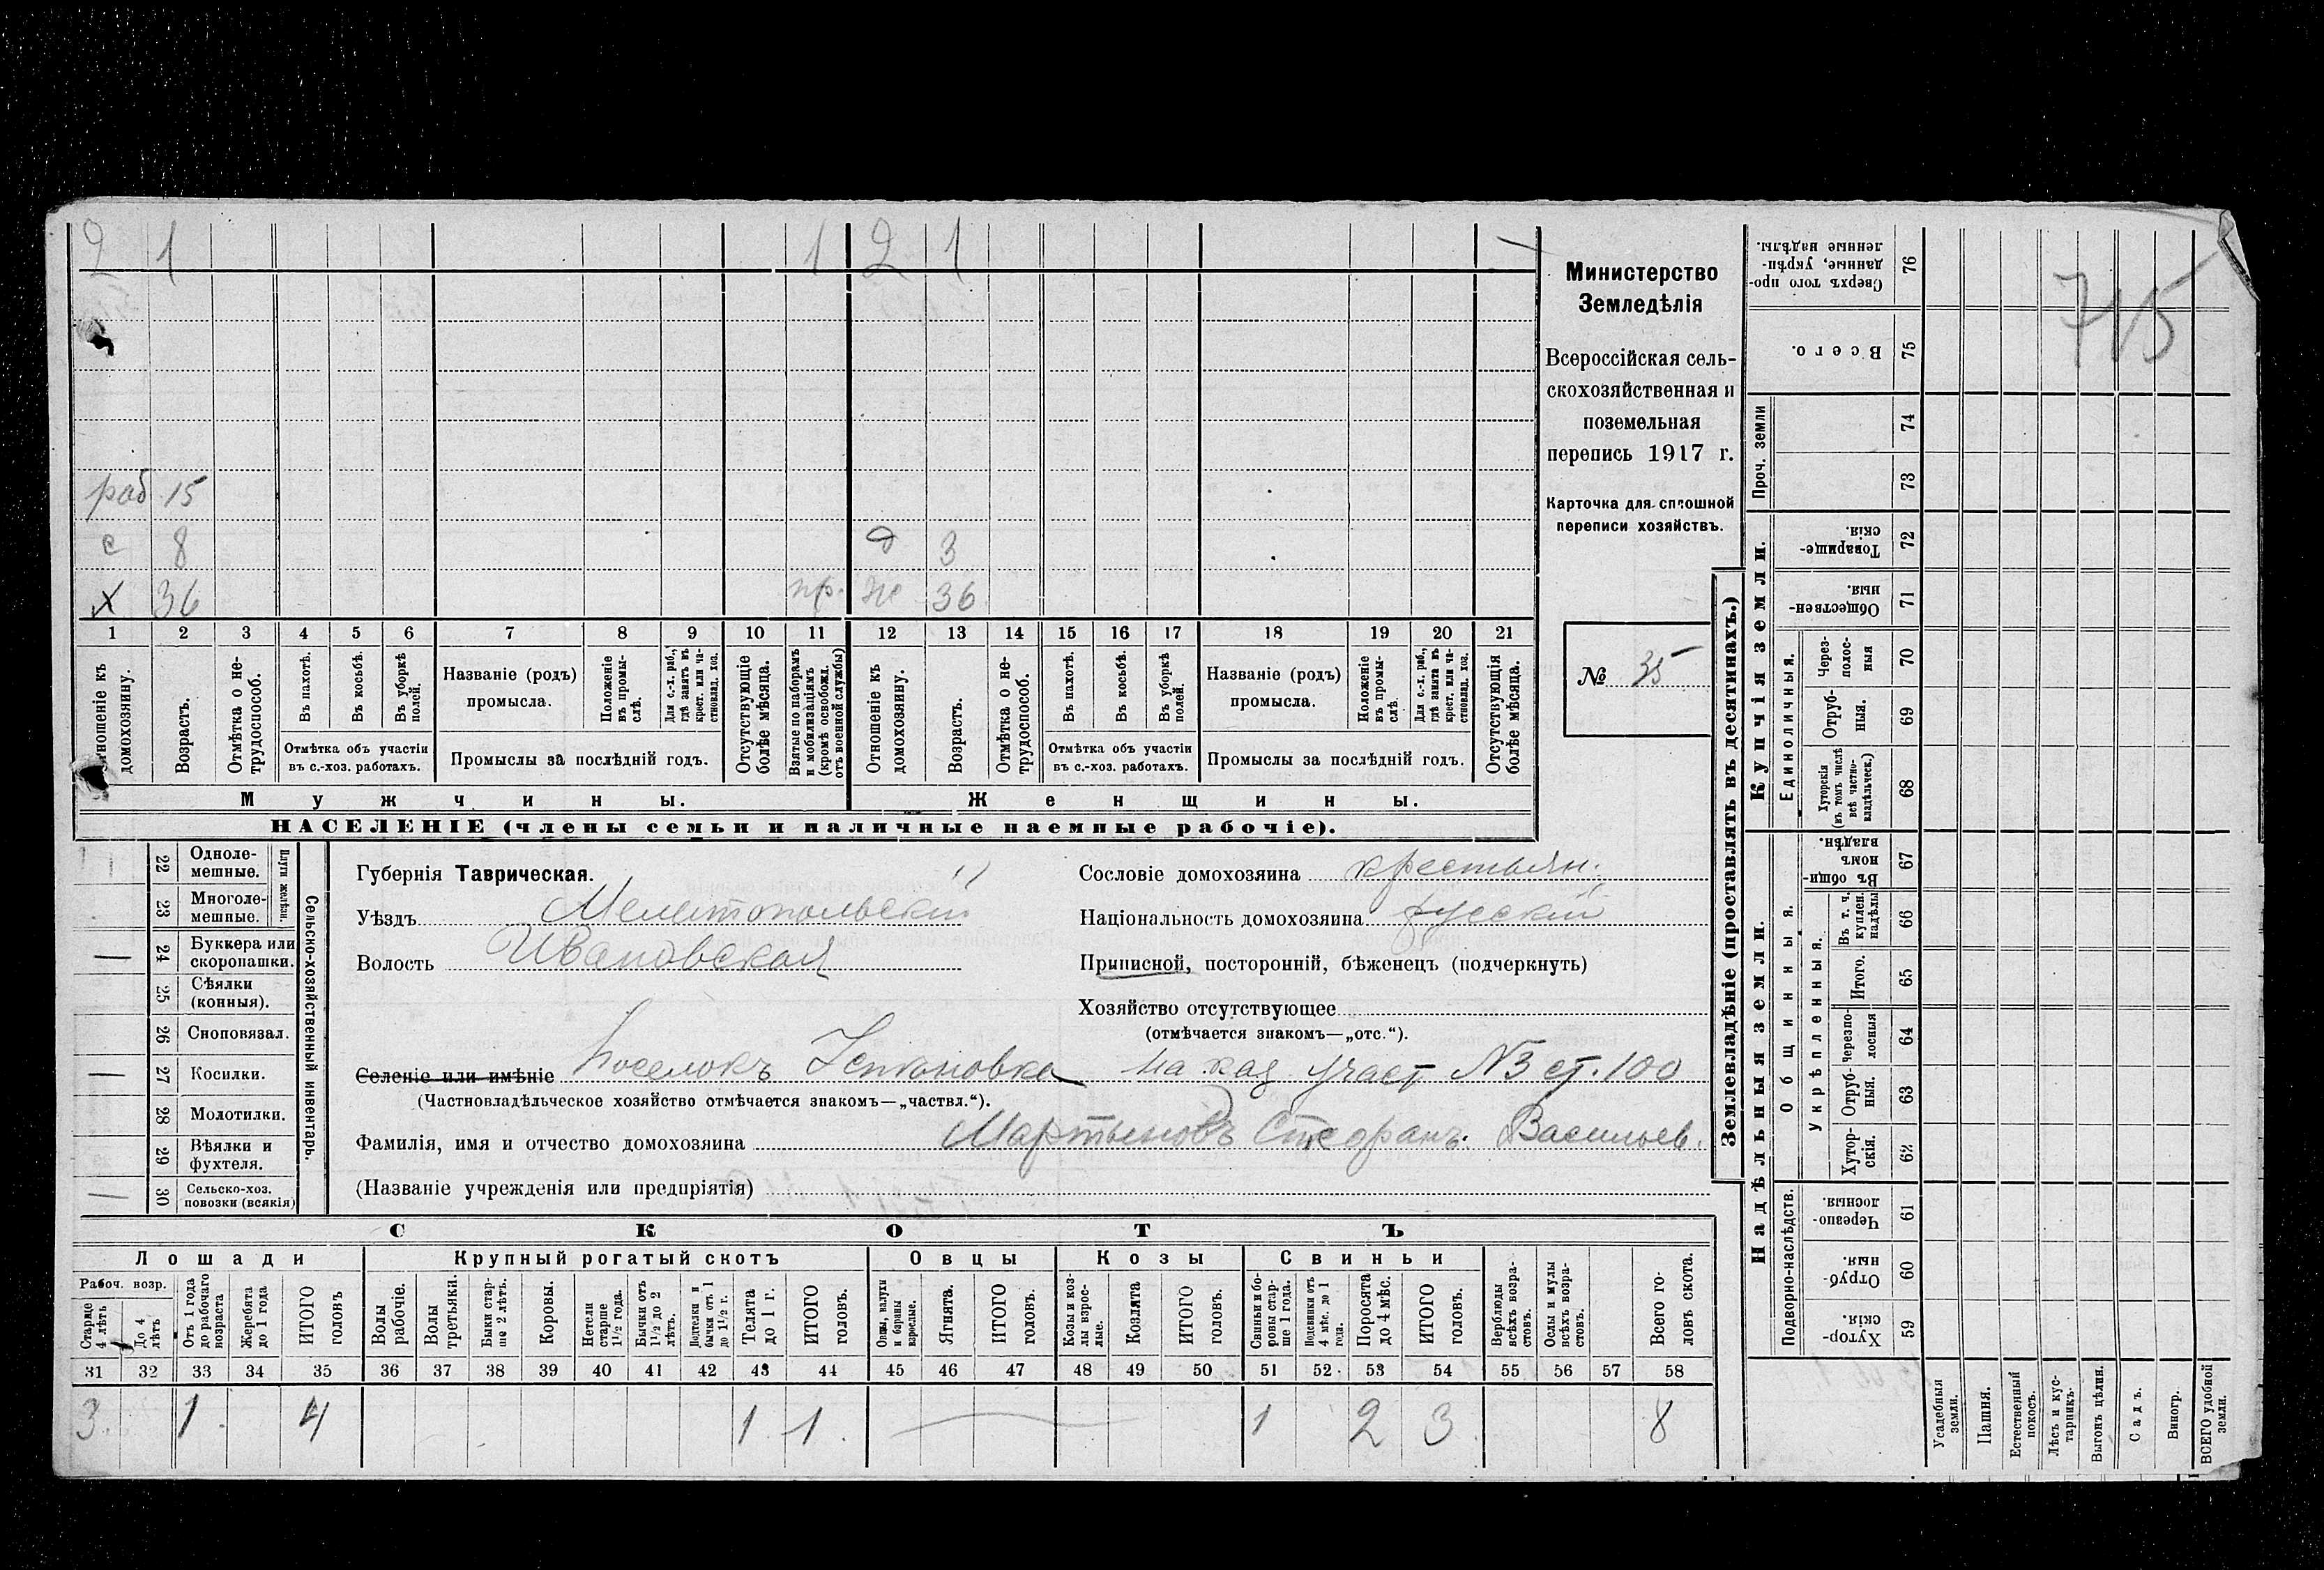 2 1 1 2 1
раб 15
с 8 д 3
х 36 пр. ж 36
1 2 3 4 5 6 7 8 9 10 11 12 13 14 15 16 17 18 19 20 21
Отношеніе къ домохозяину.
Возрастъ.
Отмѣтка о не-
трудоспособ.
Въ пахотѣ.
Въ косьбѣ.
Въ уборкѣ
полей.
Отмѣтка объ участіи
въ с.-хоз. работахъ.
Названіе (родъ)
промысла.
Положеніе
въ промы-
слѣ.
Для с.-х. раб.,
гдѣ занятъ въ
крест. или ча-
стновлад. хоз.
Промыслы за послѣдній годъ.
Отсутствующіе
болѣе мѣсяца.
Взятые по наборамъ
и мобилизаціямъ
(кромѣ освобожд.
отъ военной службы)
Отношеніе къ
домохозяину.
Возрастъ.
Отмѣтка о не-
трудоспособ.
Въ пахотѣ.
Въ косьбѣ.
Въ уборкѣ
полей.
Отмѣтка объ участіи
въ с.-хоз. работахъ.
Названіе (родъ)
промысла.
Положеніе
въ промы-
слѣ.
Для с.-х. раб.,
гдѣ занята въ
крест. или ча-
стновлад. хоз.
Промыслы за послѣдній годъ.
Отсутствующія
болѣе мѣсяца.
Мужчины.
Женщины.
НАСЕЛЕНІЕ (члены семьи и наличные наемные рабочіе).
Министерство
Земледѣлія
Всероссійская сель-
скохозяйственная и
поземельная
перепись 1917 г.
Карточка для сплошной
переписи хозяйствъ.
№ 35
22 Одноле-
мешные.
23 Многоле-
мешные.
Плуги желѣзн.
24 Буккера или
скоропашки.
25 Сѣялки
(конныя).
26 Сноповязал.
27 Косилки.
28 Молотилки.
29 Вѣялки и
фухтеля.
30 Сельско-хоз.
повозки (всякія)
Сельско-хозяйственный инвентарь.
Губернія Таврическая.
Уѣздъ Мелитопольскій
Волость Ивановская
Сословіе домохозяина крестьян.
Національность домохозяина русскій
Приписной, посторонній, бѣженецъ (подчеркнуть)
Хозяйство отсутствующее
(отмѣчается знакомъ—„отс.“).
Селеніе или имѣніе Поселокъ на каз участ №3 ст. 100
(Частновладѣльческое хозяйство отмѣчается знакомъ—„частвл.“).
Фамилія, имя и отчество домохозяина Мартыновъ Стефанъ Васильев.
(Названіе учрежденія или предпріятія)
СКОТЪ
Лошади Крупный рогатый скотъ Овцы Козы Свиньи
Рабоч. возр.
Старше
4 лѣтъ
До 4
лѣтъ
Отъ 1 года
до рабочаго
возраста
Жеребята
до 1 года
ИТОГО
головъ
Волы
рабочіе.
Волы
третьяки.
Быки стар-
ше 2 лѣтъ.
Коровы.
Нетели
старше
1½ года.
Бычки отъ
1½ до 2
лѣтъ.
Подтелки и
бычки отъ 1
до 1½ г.
Телята
до 1 г.
ИТОГО
головъ.
Овцы, валухи
и бараны
взрослые.
Ягнята.
ИТОГО
головъ.
Козы и коз-
лы взрос-
лые.
Козлята
ИТОГО
головъ.
Свиньи и бо-
ровы стар-
ше 1 года.
Подсвинки отъ
4 мѣс. до 1
года.
Поросята
до 4 мѣс.
ИТОГО
головъ.
Верблюды
всѣхъ возра-
стовъ.
Ослы и мулы
всѣхъ возра-
стовъ.
Всего го-
ловъ скота.
31 32 33 34 35 36 37 38 39 40 41 42 43 44 45 46 47 48 49 50 51 52 53 54 55 56 57 58
3 1 4 1 1 1 2 3 8
Землевладѣніе (проставлять въ десятинахъ.)
Купчія земли.
Надѣльныя земли.
Сверхъ того про-
данные, укрѣп-
ленные надѣлы.
76
Всего.
75
Проч. земли
74
73
Товарище-
скія.
72
Обществен-
ныя.
71
Единоличныя.
Через-
полос-
ныя
70
Отруб-
ныя.
69
Хуторскія
(въ томъ числѣ
всѣ частно-
владѣльческ.)
68
Общинныя.
Въ общин-
номъ
владѣн.
67
Укрѣпленныя.
Въ т. ч.
куплен.
надѣлы
66
Итого.
65
Черезпо-
лосныя
64
Отруб-
ныя.
63
Хутор-
скія.
62
Подворно-наслѣдств.
Черезпо-
лосныя
61
Отруб-
ныя.
60
Хутор-
скія.
59
Усадебныя
земли.
Пашня.
Естественный
покосъ.
Лѣсъ и кус-
тарникъ.
Выгонъ цѣлин.
Садъ.
Виногр.
ВСЕГО удобной
земли.
715